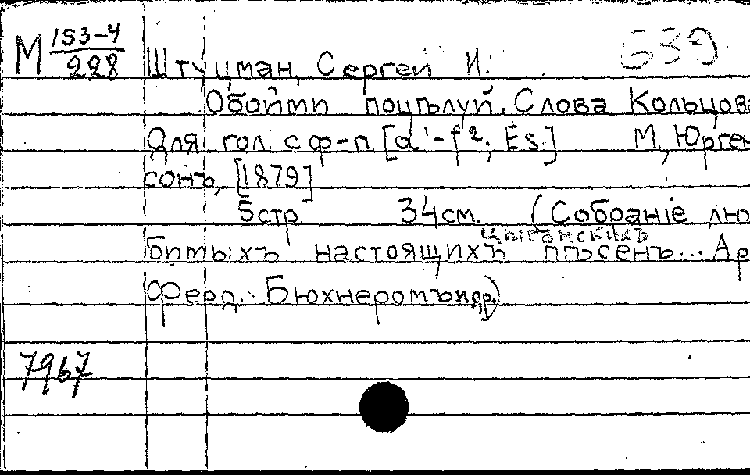 М 153-4/228
Штуцман, Сергей И. 639
Обойми поцѣлуй. Слова Кольцова
Для гол. с ф-п [d'-f²; Es.] М, Юрген
сонъ, [1879]
5 стр 34 см. (Собраніе лю
цыганскихъ
битыхъ настоящихъ пѣсенъ... Ар
Ферд. Бюхнеромъ и др.)
7967